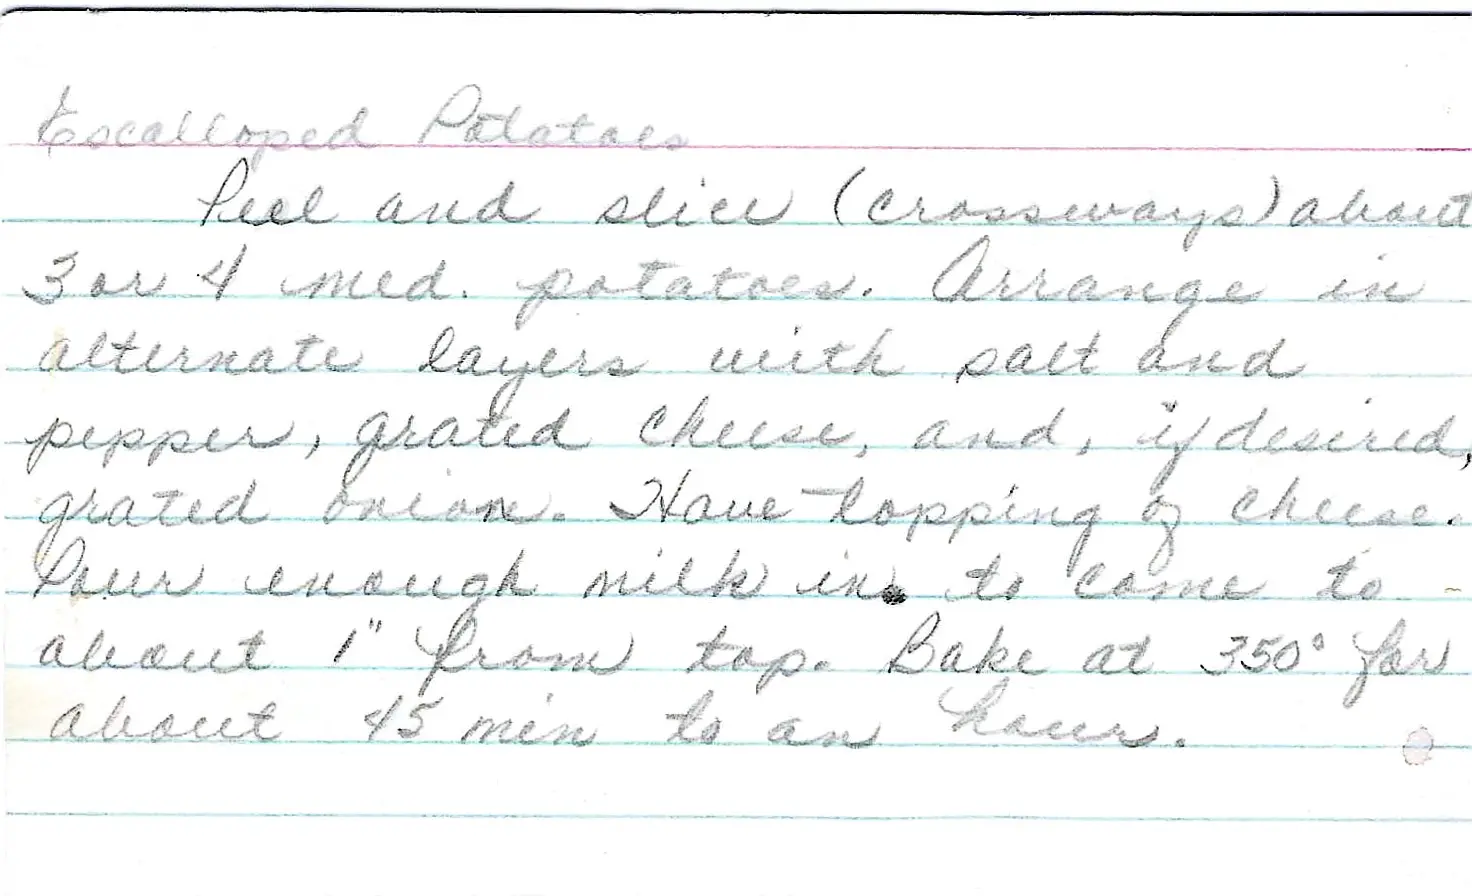 Escalloped Potatoes
Peel and slice (crossways) about
3 or 4 med. potatoes. Arrange in
alternate layers with salt and
pepper, grated cheese, and, if desired,
grated onion. Have topping of cheese.
Pour enough milk in to come to
about 1" from top. Bake at 350° for
about 45 min to an hour.